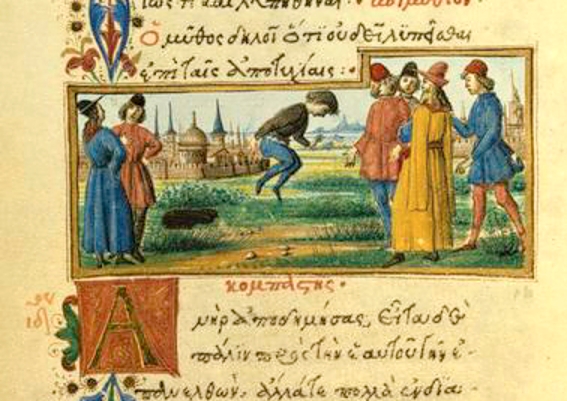 Ὁ μῦθος δηλοῖ ὅτι οὐ δεῖ λυπεῖσθαι
ἐπὶ ταῖς ἀποτυχίαις:
κομπαστής.
Ἀνὴρ ἀποδημήσας, εἶτα δὲ
πάλιν πρὸς τὴν ἑαυτοῦ γῆν ἐ-
πανελθὼν, ἄλλά τε πολλὰ ἐν δια-